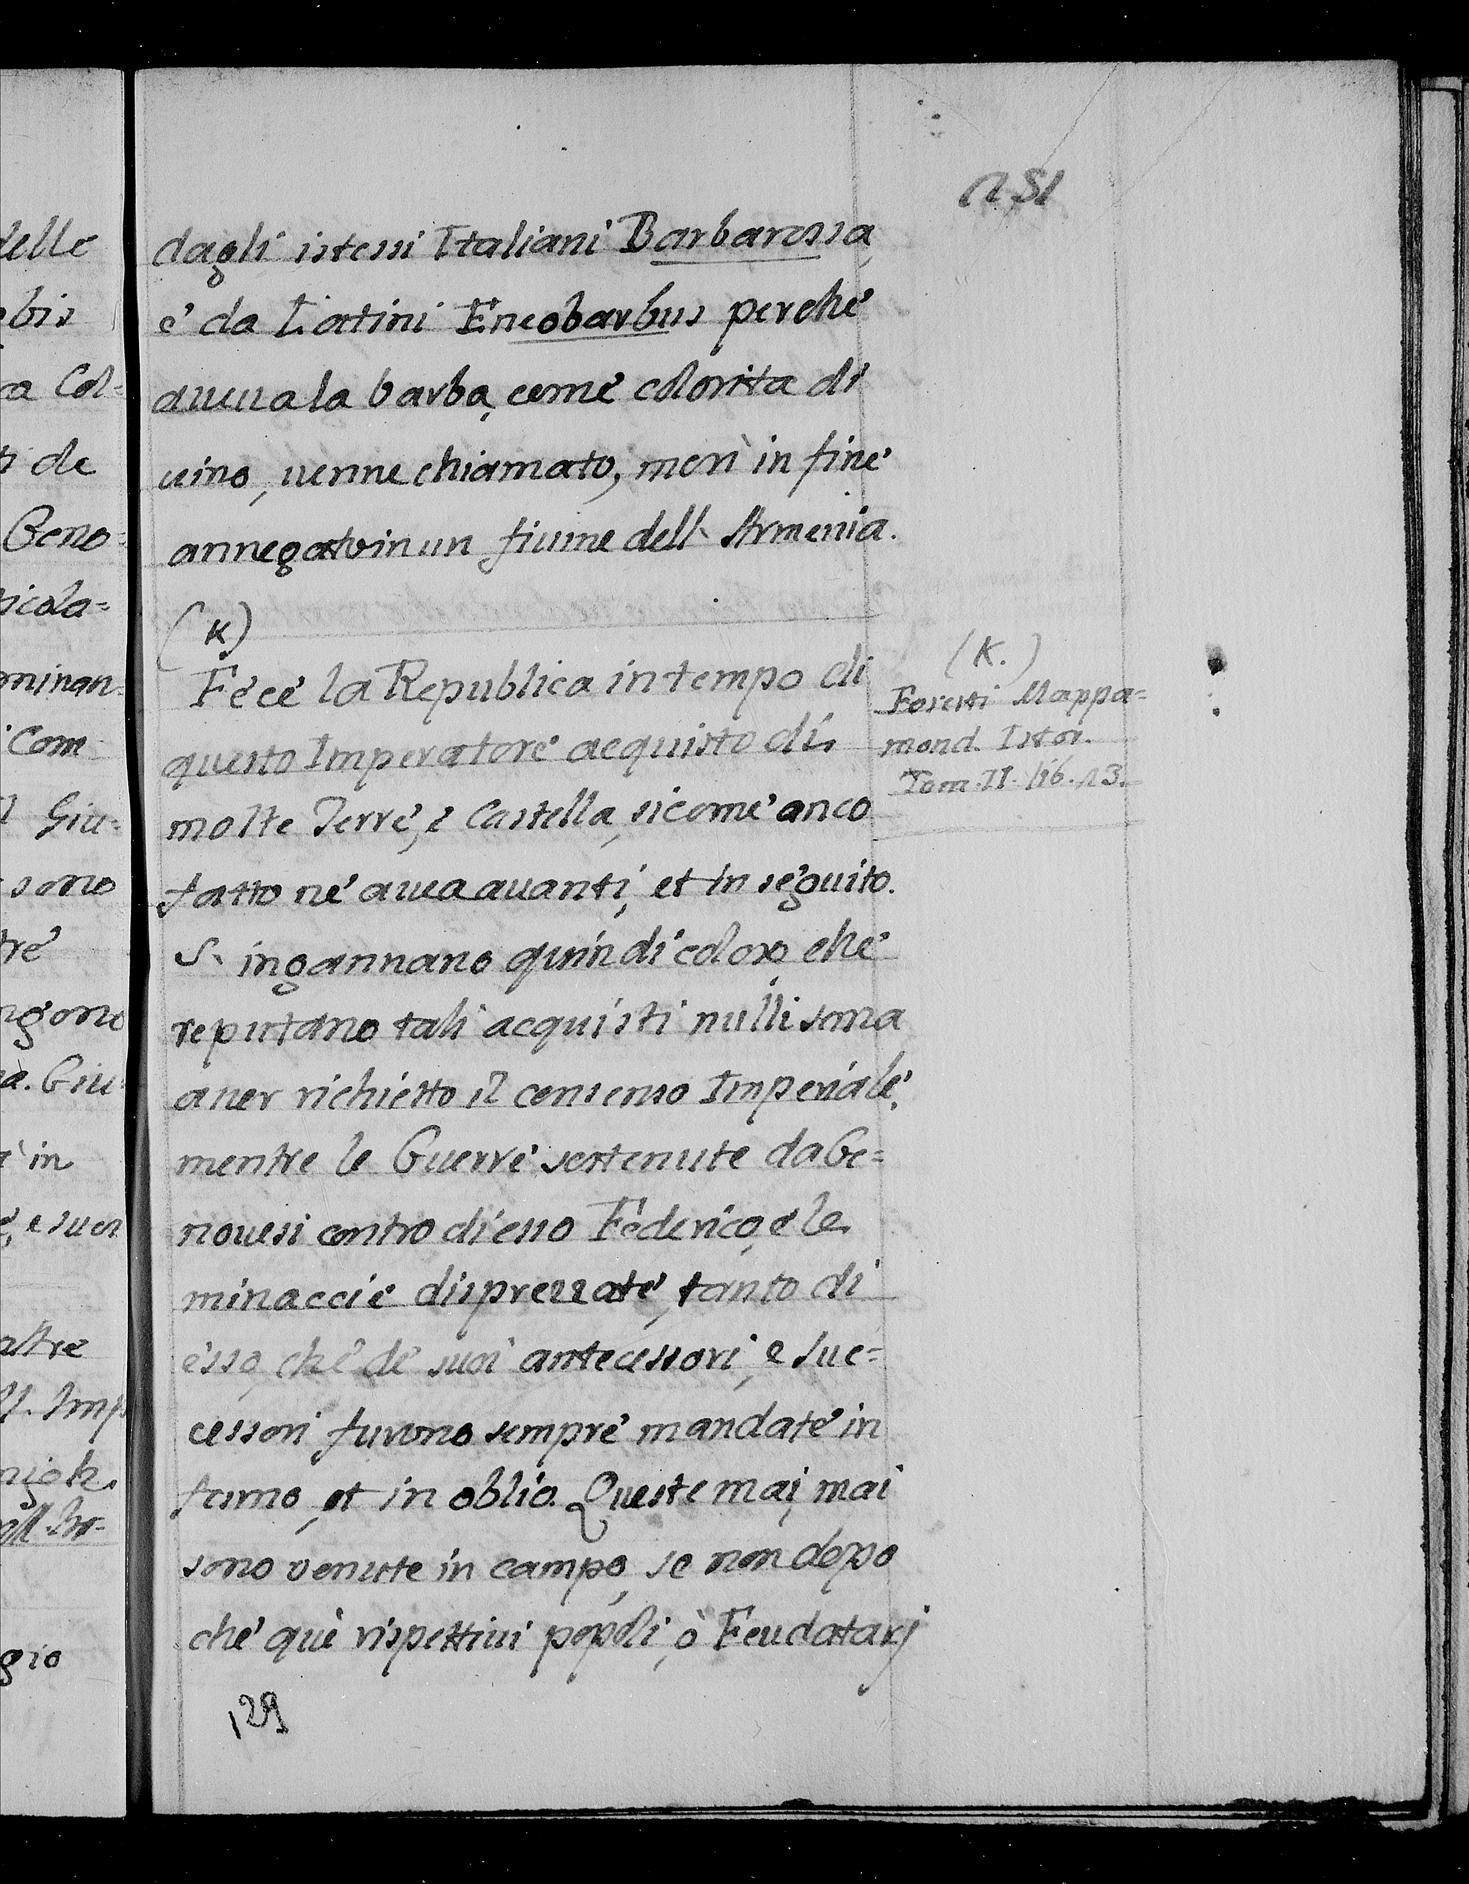 dagli istessi Italiani Barbarossa,
e' da Latini Eneobarbus perche'
aueua la barba, come' colorita di
uino, uenne chiamato, morì in fine'
annegato in un fiume dell' Armenia.
(K)
Fece' la Republica in tempo di
questo Imperatore' acquisto di
molte Terre', e Castella, sicome' anco
fatto ne' auea auanti, et in seguito.
S' ingannano quindi coloro, che'
reputano tali acquisti nulli senza
auer richiesto il consenso Imperiale',
mentre le Guerre' sostenute da Ge=
nouesi contro di esso Federico, e le
minaccie disprezzate', tanto di
esso, che de' suoi antecessori, e suc=
cessori furono sempre' mandate' in
fumo, et in oblio. Queste mai, mai
sono venute in campo, se non dopo
che' què rispettiui popoli, ò Feudatarj
129
(K.)
Foresti Mappa=
mond. Istor.
Tom. II. lib. 13.
delle
bis
ra Col=
de
Geno=
icola=
minan=
Com=
Giu=
sono
tre'
ngono
Giu
in
altre
Imp
gio